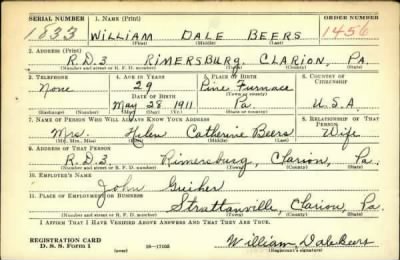 SERIAL NUMBER 1. NAME (Print) ORDER NUMBER
1833 WILLIAM DALE BEERS 1456
(First) (Middle) (Last)
2. ADDRESS (Print)
R.D.3 RIMERSBURG, CLARION, PA.
(Number and street or R. F. D. number) (Town) (County) (State)
3. TELEPHONE 4. AGE IN YEARS 5. PLACE OF BIRTH 6. COUNTRY OF CITIZENSHIP
None 29 Pine Furnace
DATE OF BIRTH (Town or county)
May 28 1911 Pa U.S.A.
(Exchange) (Number) (Mo.) (Day) (Yr.) (State or country)
7. NAME OF PERSON WHO WILL ALWAYS KNOW YOUR ADDRESS 8. RELATIONSHIP OF THAT PERSON
Mrs. Helen Catherine Beers Wife
(Mr., Mrs., Miss) (First) (Middle) (Last)
9. ADDRESS OF THAT PERSON
R.D.3 Rimersburg, Clarion, Pa.
(Number and street or R. F. D. number) (Town) (County) (State)
10. EMPLOYER'S NAME
John
11. PLACE OF EMPLOYMENT OR BUSINESS
Strattanville, Clarion, Pa.
(Number and street or R. F. D. number) (Town) (County) (State)
I AFFIRM THAT I HAVE VERIFIED ABOVE ANSWERS AND THAT THEY ARE TRUE.
REGISTRATION CARD
D. S. S. Form 1 (over) 16—17105 William Dale Beers
(Registrant's signature)